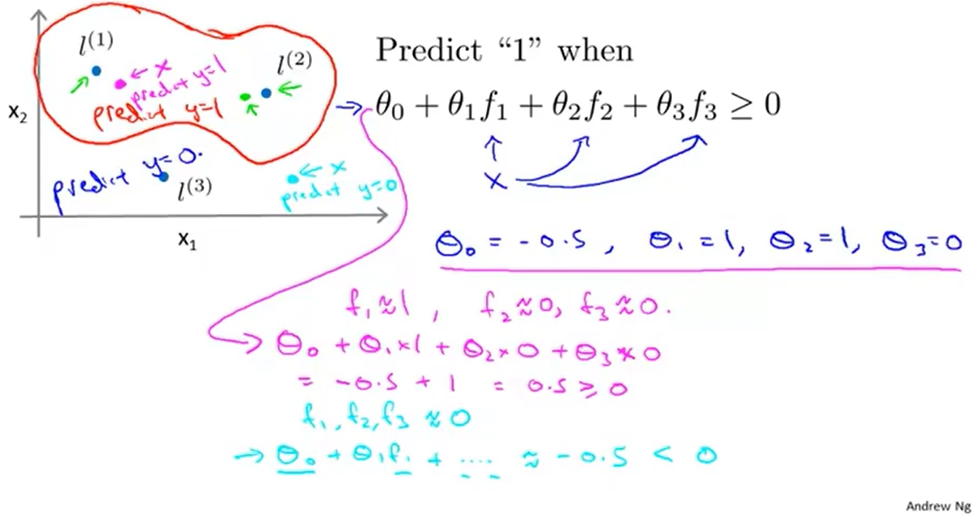 l⁽¹⁾
l⁽²⁾
← x
predict y=1
predict y=1
x₂
predict y=0.
l⁽³⁾
← x
predict y=0
x₁
Predict “1” when
→ θ₀ + θ₁f₁ + θ₂f₂ + θ₃f₃ ≥ 0
x
θ₀ = -0.5, θ₁=1, θ₂=1, θ₃=0
f₁≈1, f₂≈0, f₃≈0.
→ θ₀ + θ₁×1 + θ₂×0 + θ₃×0
= -0.5 + 1 = 0.5 ≥ 0
f₁, f₂, f₃ ≈ 0
→ θ₀ + θ₁f₁ + .... ≈ -0.5 < 0
Andrew Ng